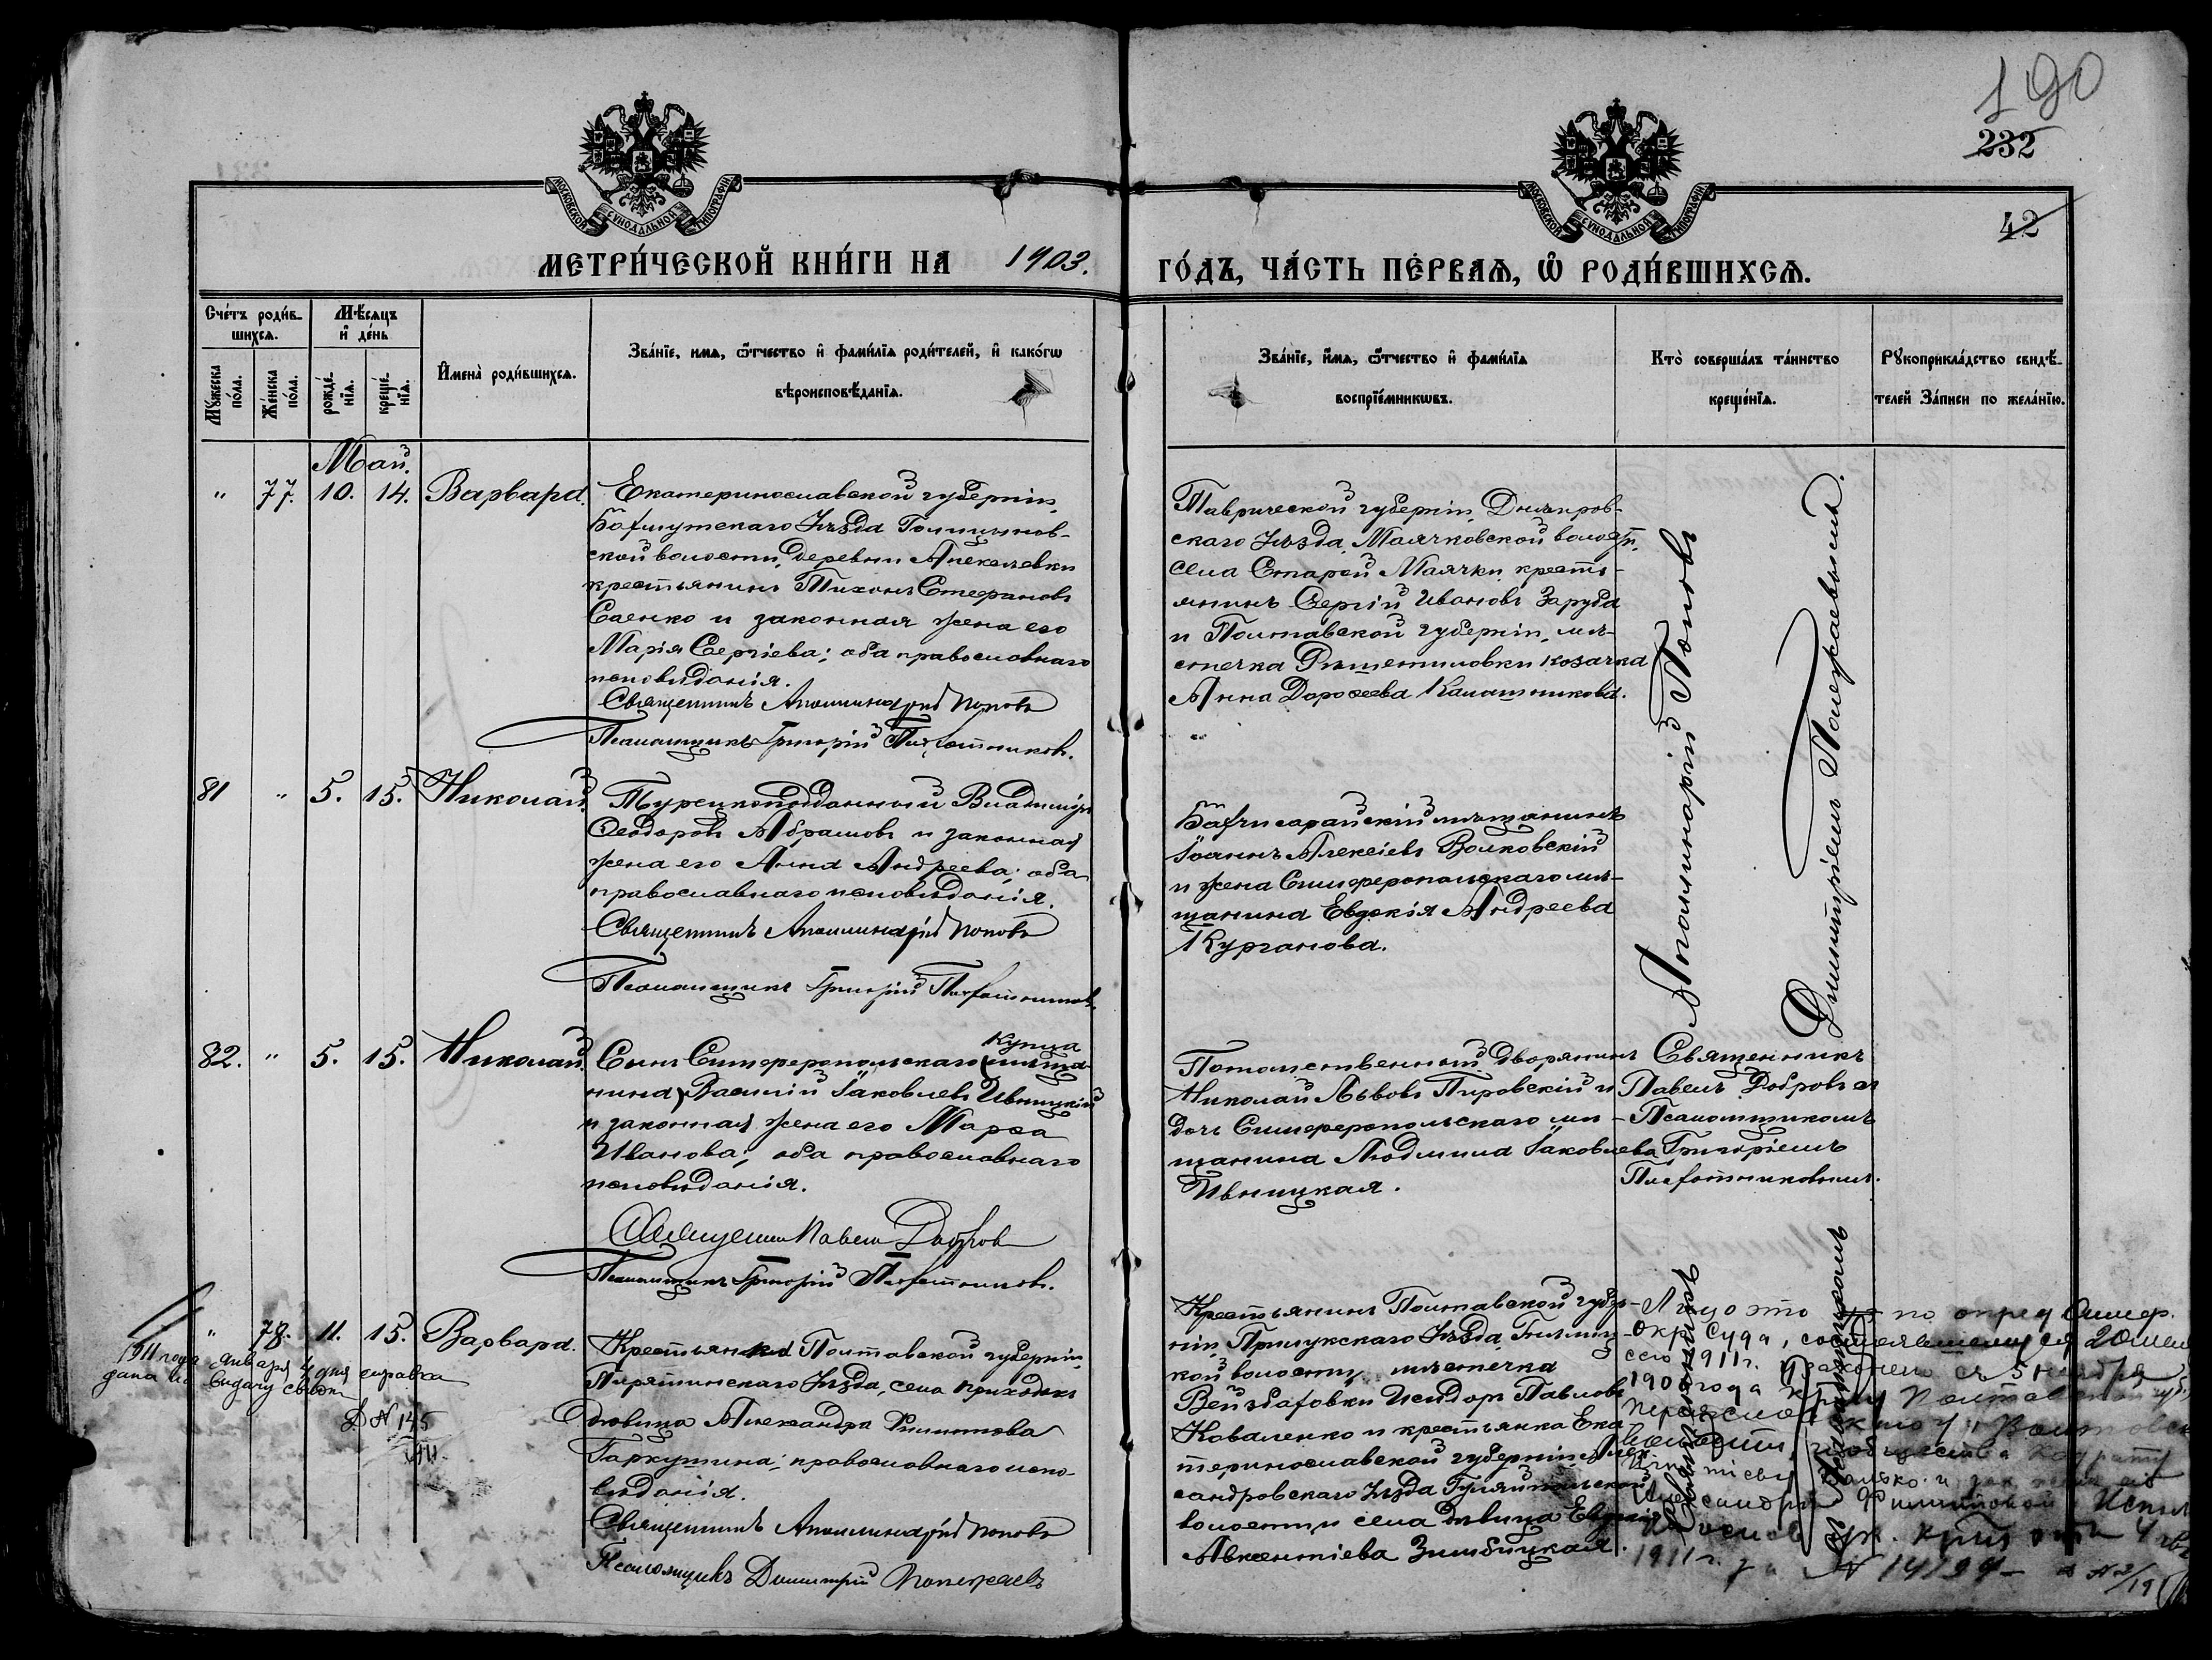 190
232
42
МОСКОВСКОЙ СѴНОДАЛЬНОЙ ТИПОГРАФІИ
МОСКОВСКОЙ СѴНОДАЛЬНОЙ ТИПОГРАФІИ
МЕТРИ́ЧЕСКОЙ КНИ́ГИ НА 1903.
ГО́ДЪ, ЧА́СТЬ ПЕ́РВАѦ, Ѽ РОДИ́ВШИХСѦ.
Сче́тъ роди́вшихсѧ.
Мꙋ́жеска по́ла.
Же́нска по́ла.
Мѣ́сѧцъ и҆ де́нь
рожде́нїѧ.
креще́нїѧ.
И҆мена̀ роди́вшихсѧ.
Зва́нїе, и҆мѧ, ѻ҆́тчество и҆ фами́лїѧ роди́телей, и҆ како́гѡ
вѣроисповѣ́данїѧ.
Зва́нїе, и҆́мѧ, ѻ҆́тчество и҆ фами́лїѧ
воспрїе́мникѡвъ.
Кто̀ соверша́лъ та́инство
креще́нїѧ.
Рꙋкоприкла́дство свидѣ́-
телей За́писи по жела́нїю.
Май.
" 77. 10. 14. Варвара.
Екатеринославской губерніи,
Бахмутскаго Уѣзда Голицинов-
ской волости, деревни Алексѣевки
крестьянинъ Тихонъ Стефановъ
Саенко и законная жена его
Марія Сергіева; оба православнаго
исповѣданія.
Священникъ Аполлинарій Поповъ
Псаломщикъ Григорій Плахотниковъ.
Таврической губерніи, Днѣпров-
скаго Уѣзда, Маячковской волости,
села Старой Маячки, кресть-
янинъ Сергій Ивановъ Заруда
и Полтавской губерніи, мѣ-
стечка Рѣшетиловки козачка
Анна Дороѳеева Калашникова.
81 " 5. 15. Николай.
Турецкоподданный Владиміръ
Ѳеодоровъ Абрамовъ и законная
жена его Анна Андреева; оба
православнаго исповѣданія.
Священникъ Аполлинарій Поповъ
Псаломщикъ Григорій Плахотниковъ.
Бахчисарайскій мѣщанинъ
Іоаннъ Алексіевъ Волковскій
и жена Симферопольскаго мѣ-
щанина Евдокія Андреева
Курганова.
Священникъ Аполлинарій Поповъ
съ Псаломщикомъ Димитріемъ Поперхаевымъ.
82. " 5. 15. Николай.
купца
Сынъ Симферопольскаго (мѣща-
нина) Василій Іаковлевъ Ивницкій
и законная жена его Марѳа
Иванова; оба православнаго
исповѣданія.
Священникъ Павелъ Добровъ
Псаломщикъ Григорій Плахотниковъ.
Потомственный дворянинъ
Николай Львовъ Пировскій и
дочь Симферопольскаго мѣ-
щанина Людмила Іаковлева
Ивницкая.
Священникъ
Павелъ Добровъ съ
Псаломщикомъ
Григоріемъ
Плахотниковымъ.
" 78. 11. 15. Варвара.
Крестьянка Полтавской губерніи,
Пирятинскаго Уѣзда, села Приходки
дѣвица Александра Филиппова
Гаркушина; православнаго испо-
вѣданія.
Священникъ Аполлинарій Поповъ
Псаломщикъ Димитрій Поперхаевъ
Крестьянинъ Полтавской губер-
ніи, Прилукскаго Уѣзда,
кой волости, мѣстечка
Исидоръ Павловъ
Коваленко и крестьянка Ека-
теринославской губерніи, Алек-
сандровскаго Уѣзда Гуляйпольской
волости и села дѣвица Евдокія
Авксентіева Зимбицкая.
1911 года января 4 дня справка
дана на выдачу свидѣт
№ 145
1911
Лицо это по опред Симфер.
Окр Суда, состоявшемуся 20
сего 1911 г. узаконено съ 5 ноября
190 года
Полтавской губ.
волости,
Александрой Филипповой
1911 г. за № 14194